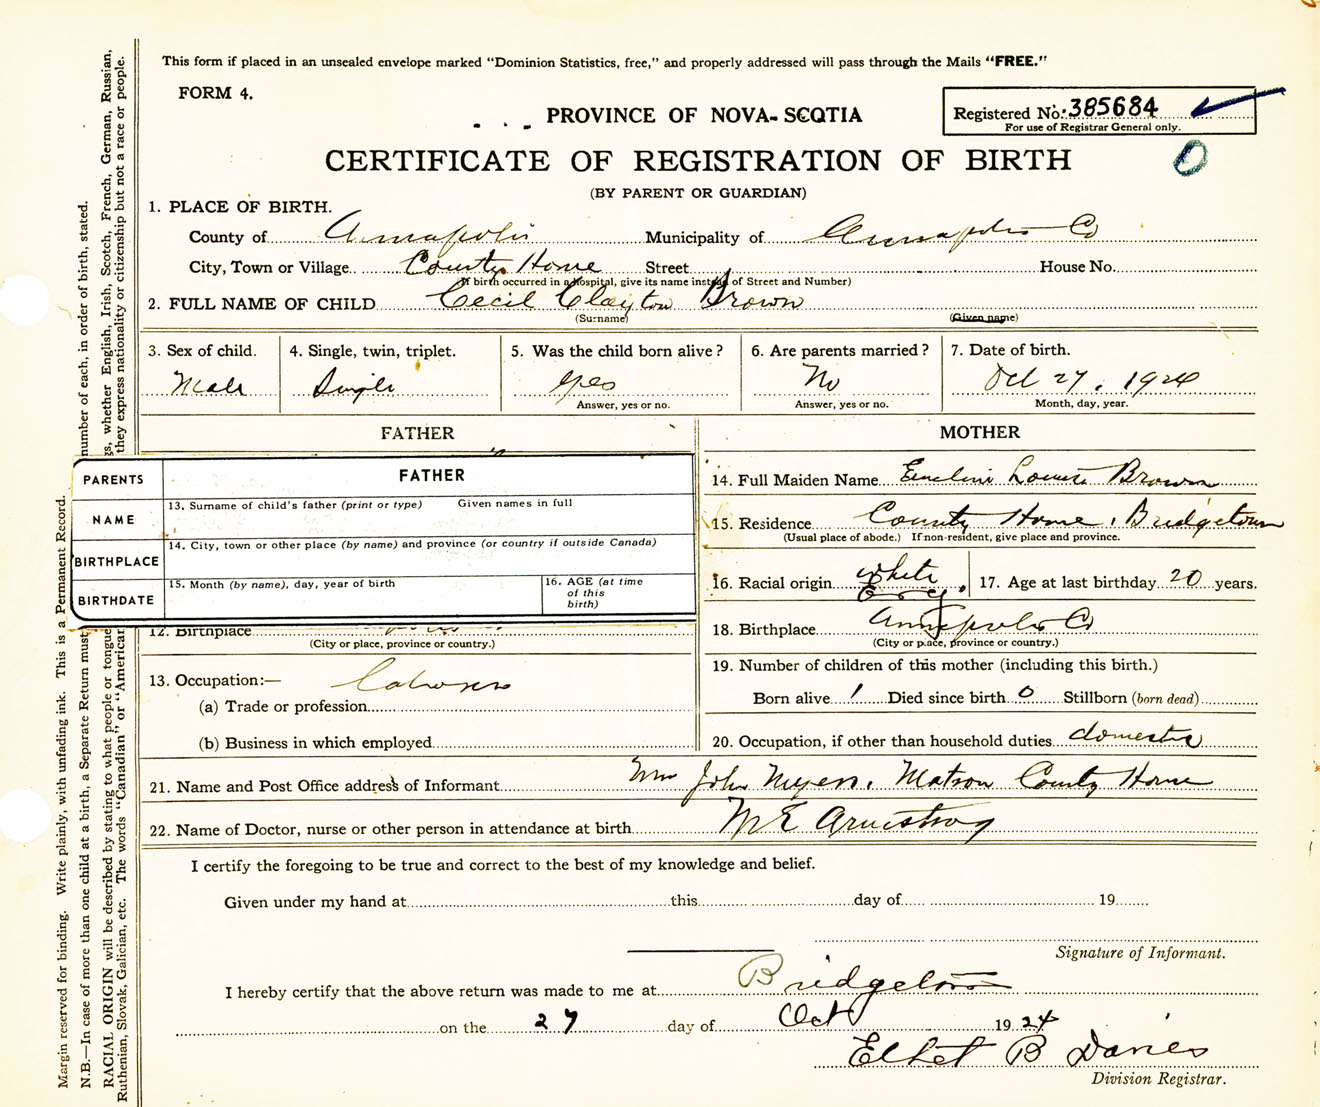 This form if placed in an unsealed envelope marked "Dominion Statistics, free," and properly addressed will pass through the Mails "FREE."
FORM 4.
PROVINCE OF NOVA SCOTIA
Registered No. 385684
For use of Registrar General only.
CERTIFICATE OF REGISTRATION OF BIRTH
0
(BY PARENT OR GUARDIAN)
1. PLACE OF BIRTH.
County of Annapolis Municipality of Annapolis Co
City, Town or Village County Home Street House No.
(If birth occurred in a hospital, give its name instead of Street and Number)
2. FULL NAME OF CHILD Cecil Clayton Brown
(Surname) (Given name)
3. Sex of child. 4. Single, twin, triplet. 5. Was the child born alive? 6. Are parents married? 7. Date of birth.
Male Single Yes No Oct 27, 1924
Answer, yes or no. Answer, yes or no. Month, day, year.
FATHER MOTHER
PARENTS FATHER
NAME 13. Surname of child's father (print or type) Given names in full
BIRTHPLACE 14. City, town or other place (by name) and province (or country if outside Canada)
BIRTHDATE 15. Month (by name), day, year of birth 16. AGE (at time of this birth)
12. Birthplace
(City or place, province or country.)
13. Occupation:—
(a) Trade or profession
(b) Business in which employed
14. Full Maiden Name Louise Brown
15. Residence County Home, Bridgetown
(Usual place of abode.) If non-resident, give place and province.
16. Racial origin white 17. Age at last birthday 20 years.
18. Birthplace Annapolis Co
(City or place, province or country.)
19. Number of children of this mother (including this birth.)
Born alive 1 Died since birth 0 Stillborn (born dead)
20. Occupation, if other than household duties domestic
21. Name and Post Office address of Informant Mrs John Myers, Matron County Home
22. Name of Doctor, nurse or other person in attendance at birth M E Armstrong
I certify the foregoing to be true and correct to the best of my knowledge and belief.
Given under my hand at this day of 19
Signature of Informant.
I hereby certify that the above return was made to me at Bridgetown
on the 27 day of Oct 1924
B Davies
Division Registrar.
Margin reserved for binding. Write plainly, with unfading ink. This is a Permanent Record.
N.B.—In case of more than one child at a birth, a Separate Return must number of each, in order of birth, stated.
RACIAL ORIGIN will be described by stating to what people or tongue whether English, Irish, Scotch, French, German, Russian,
Ruthenian, Slovak, Galician, etc. The words "Canadian" or "American they express nationality or citizenship but not a race or people.